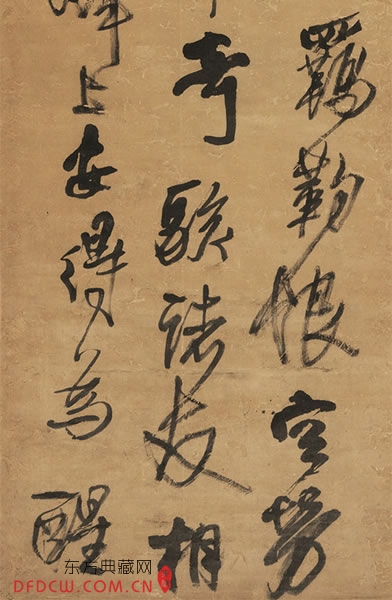 羈恨空勞
奇駭諸友相
上安得為醒
东方典藏网
DFDCW.COM.CN